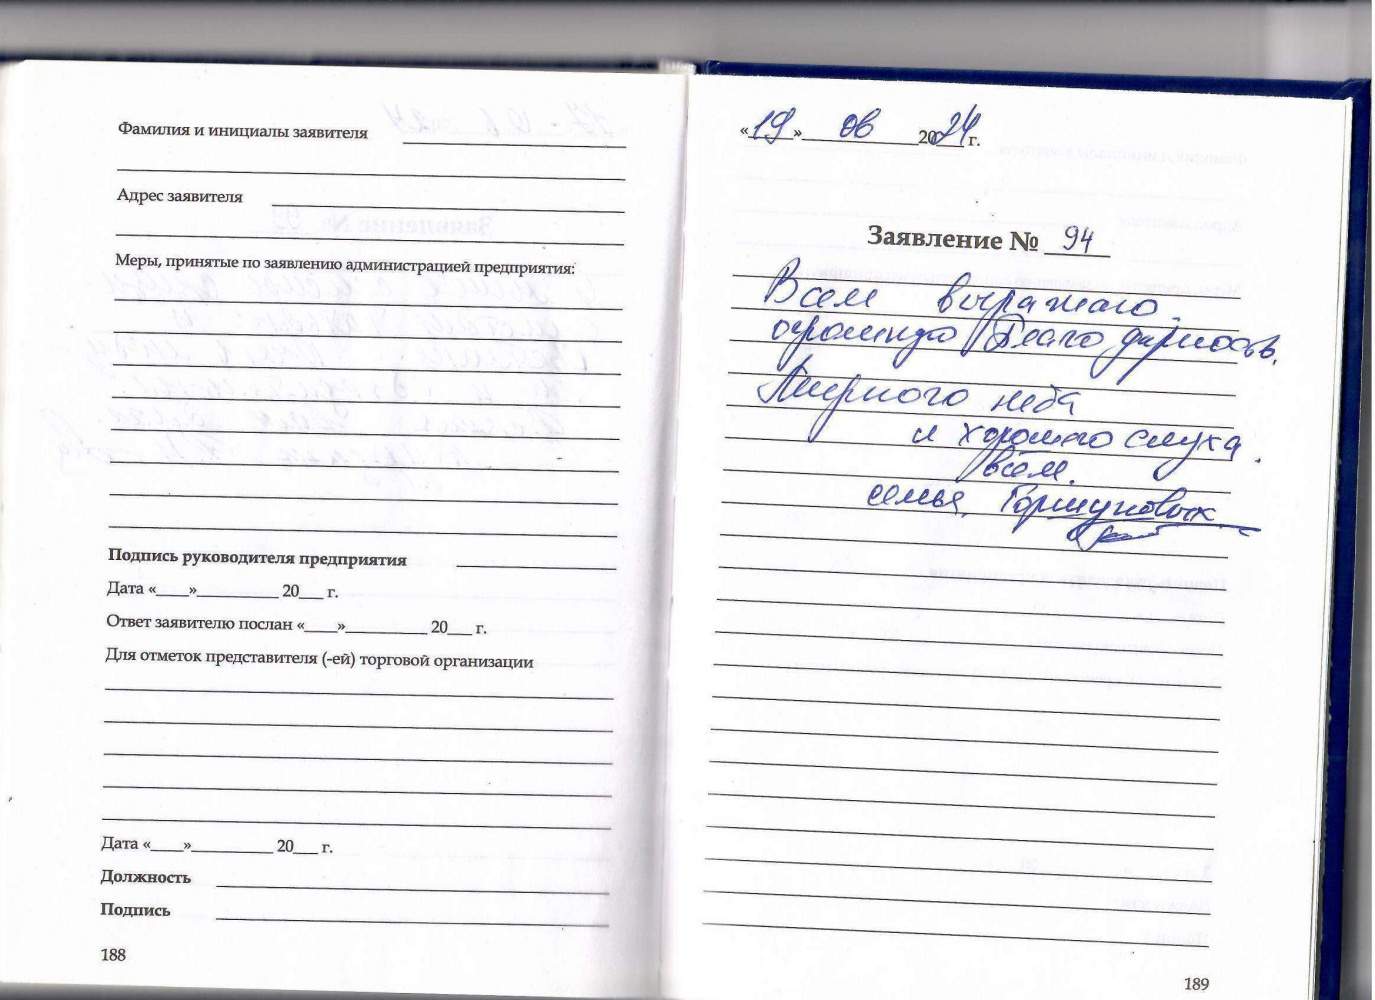 Фамилия и инициалы заявителя
Адрес заявителя
Меры, принятые по заявлению администрацией предприятия:
Подпись руководителя предприятия
Дата «____»__________ 20___ г.
Ответ заявителю послан «____»__________ 20___ г.
Для отметок представителя (-ей) торговой организации
Дата «____»__________ 20___ г.
Должность
Подпись
188
«19» 06 2024 г.
Заявление № 94
Всем выражаю
огромную благодарность.
Мирного неба
и хорошего слуха
всем.
семья
189